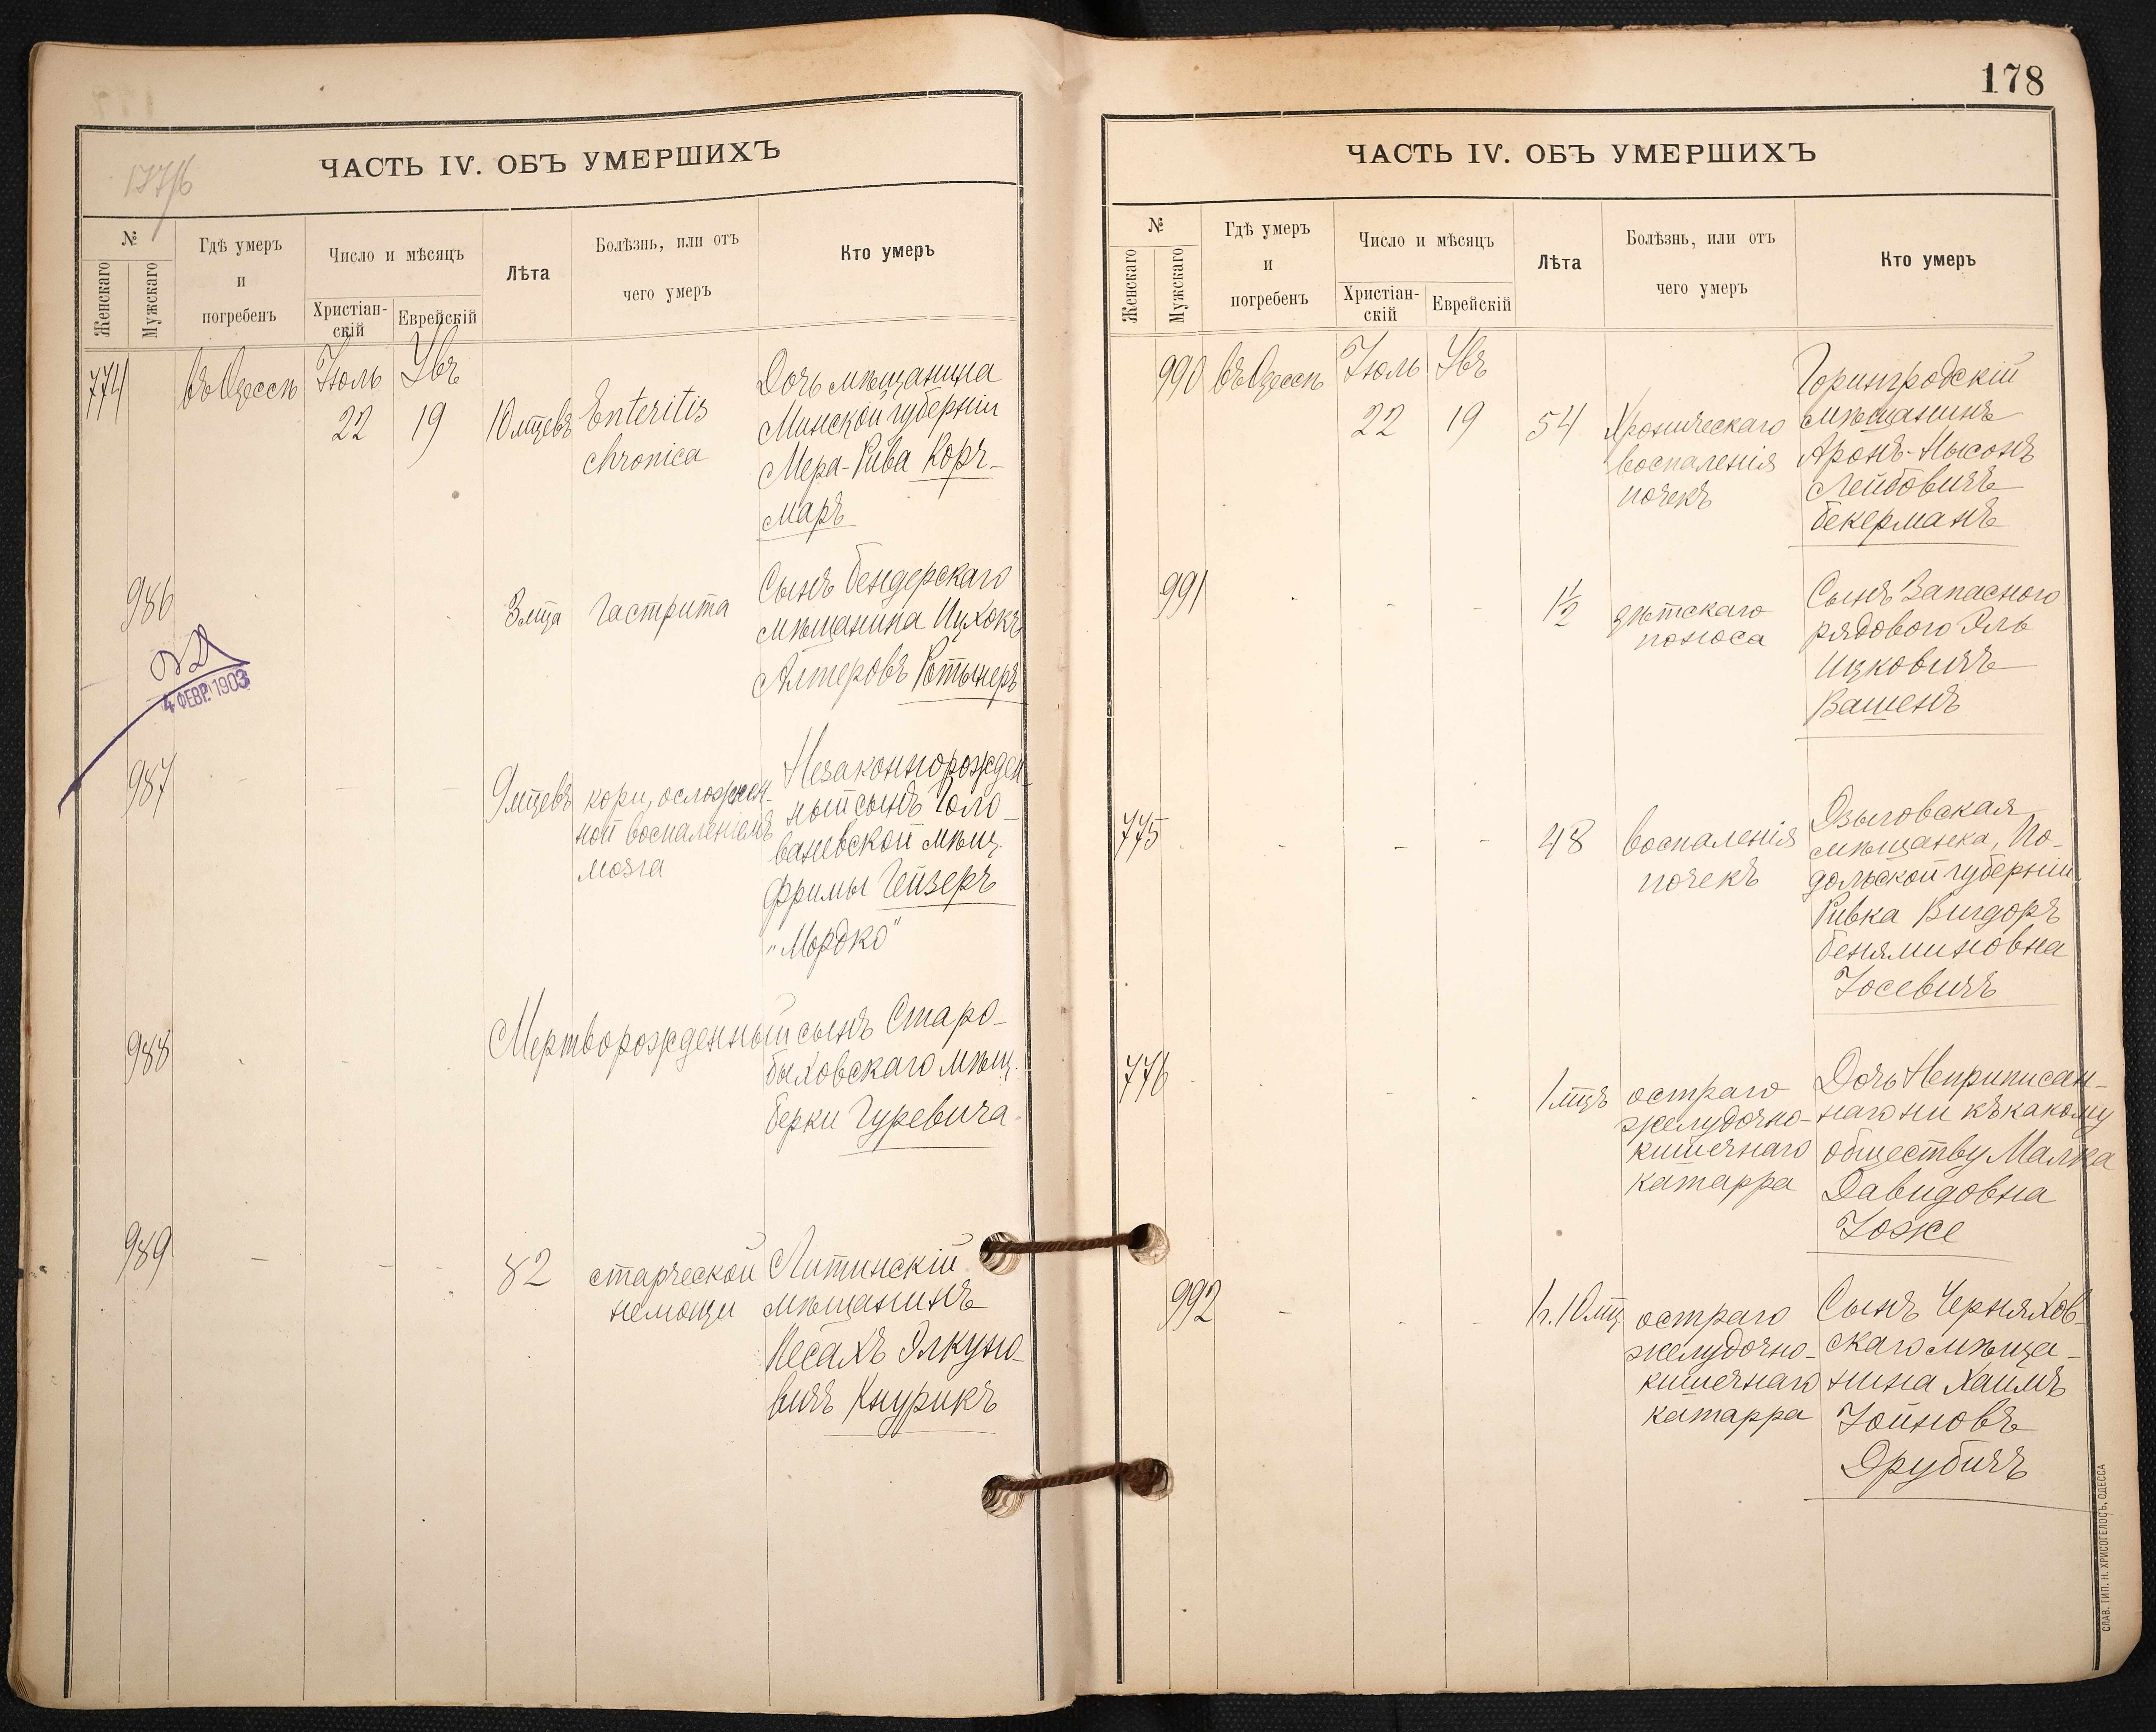 177/6
ЧАСТЬ IV. ОБЪ УМЕРШИХЪ
№
Женскаго
Мужскаго
Гдѣ умеръ
и
погребенъ
Число и мѣсяцъ
Христіан-
скій
Еврейскій
Лѣта
Болѣзнь, или отъ
чего умеръ
Кто умеръ
774
въ Одессѣ
Іюль
22
19
10 мцевъ
Enteritis
chronica
Дочь мѣщанина
Минской губерніи
Мера-Рива Корч-
маръ
986
3 мца
Гастрита
Сынъ Бендерскаго
мѣщанина Ицхокъ
Алтеровъ Ротынеръ
4 ФЕВР. 1903
987
9 мцевъ
кори, осложнен-
ной воспаленіемъ
мозга
Незаконнорожден-
ный сынъ Голо-
ваневской мѣщ.
Фримы Гейзеръ
"Мордко"
988
Мертворожденный сынъ Старо-
быховскаго мѣщ.
Берки Гуревича
989
82
старческой
немощи
Литинскій
мѣщанинъ
Песахъ Элкуно-
вичъ Кнурикъ
178
ЧАСТЬ IV. ОБЪ УМЕРШИХЪ
№
Женскаго
Мужскаго
Гдѣ умеръ
и
погребенъ
Число и мѣсяцъ
Христіан-
скій
Еврейскій
Лѣта
Болѣзнь, или отъ
чего умеръ
Кто умеръ
990
въ Одессѣ
Іюль
22
19
54
Хроническаго
воспаленія
почекъ
Горингродскій
мѣщанинъ
Аронъ-Нысонъ
Лейбовичъ
Бекерманъ
991
1½
дѣтскаго
поноса
Сынъ Запасного
рядового Эль
Ицковичъ
Вашенъ
775
48
воспаленія
почекъ
Дзыговская
мѣщанка, По-
дольской губерніи
Ривка Вигдоръ
Беняминовна
Іосевичъ
776
1 мцъ
остраго
желудочно-
кишечнаго
катарра
Дочь Неприписан-
наго ни къ какому
обществу Малка
Давидовна
Іоже
992
1 г. 10 мц.
остраго
желудочно-
кишечнаго
катарра
Сынъ Черняхов-
скаго мѣща-
нина Хаимъ
Іойновъ
Друбичъ
СЛАВ. ТИП. Н. ХРИСОГЕЛОСЪ, ОДЕССА